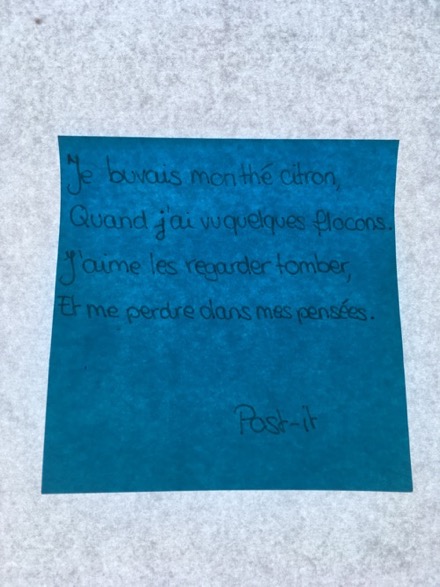 Je buvais mon thé citron,
Quand j'ai vu quelques flocons.
J'aime les regarder tomber,
Et me perdre dans mes pensées.
Post-it